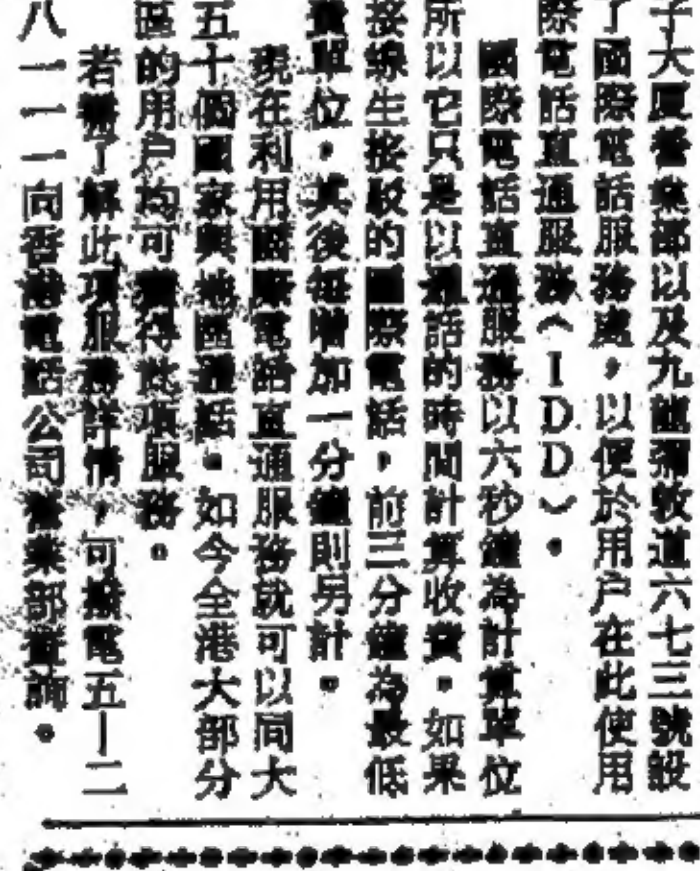 子大厦營業部以及九龍彌敦道六七三號設
了國際電話服務處，以便於用户在此使用
際電話直通服務（IDD）。
國際電話直通服務以六秒鐘為計算單位
所以它只是以通話的時間計算收費。如果
接線生接駁的國際電話，前三分鐘為最低
費單位，其後每增加一分鐘則另計。
現在利用國際電話直通服務就可以同大
五十個國家與地區通話。如今全港大部分
區的用户均可獲得此項服務。
若需了解此項服務詳情，可撥電五—二
八一一一向香港電話公司營業部查詢。